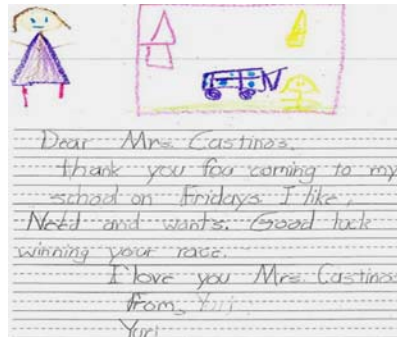 Dear Mrs. Castinos.
thank you fou coming to my
school on Fridays I like,
Need and wants. Good luck
winning your race.
I love you Mrs. Castinos
from, Yuri
Yuri